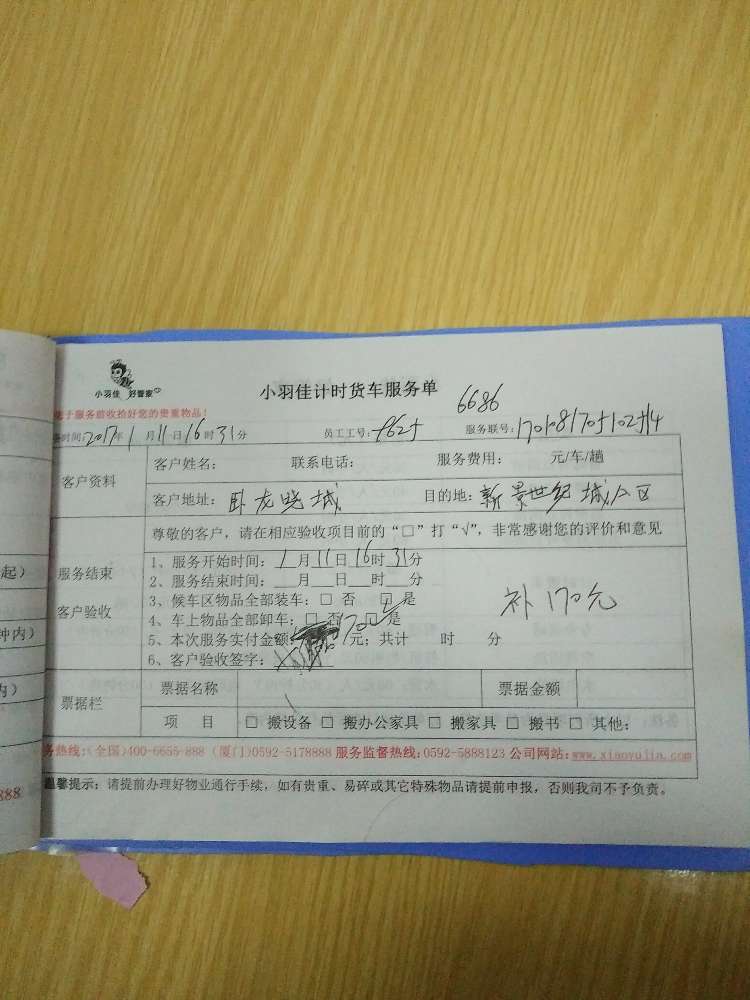 小羽佳 好管家
小羽佳计时货车服务单
子服务前收拾好您的贵重物品!
6686
时间:2017年1月11日16时31分 员工工号: 服务联号:
客户资料
客户姓名: 联系电话: 服务费用: 元/车/趟
客户地址:卧龙晓城 目的地:新景世纪城
服务结束
客户验收
尊敬的客户,请在相应验收项目前的“□”打“√”,非常感谢您的评价和意见
1、服务开始时间:1月11日16时31分
2、服务结束时间:___月___日___时___分
3、候车区物品全部装车:□ 否 □ 是
4、车上物品全部卸车:□ 否 □ 是
5、本次服务实付金额:170元;共计 时 分
6、客户验收签字:
补170元
票据栏
票据名称 票据金额
项 目 □ 搬设备 □ 搬办公家具 □ 搬家具 □ 搬书 □ 其他:
务热线:(全国)400-6655-888 (厦门)0592-5178888 服务监督热线:0592-5888123 公司网站:www.xiaoyujia.com
温馨提示:请提前办理好物业通行手续,如有贵重、易碎或其它特殊物品请提前申报,否则我司不予负责。
起)
钟内)
内)
888